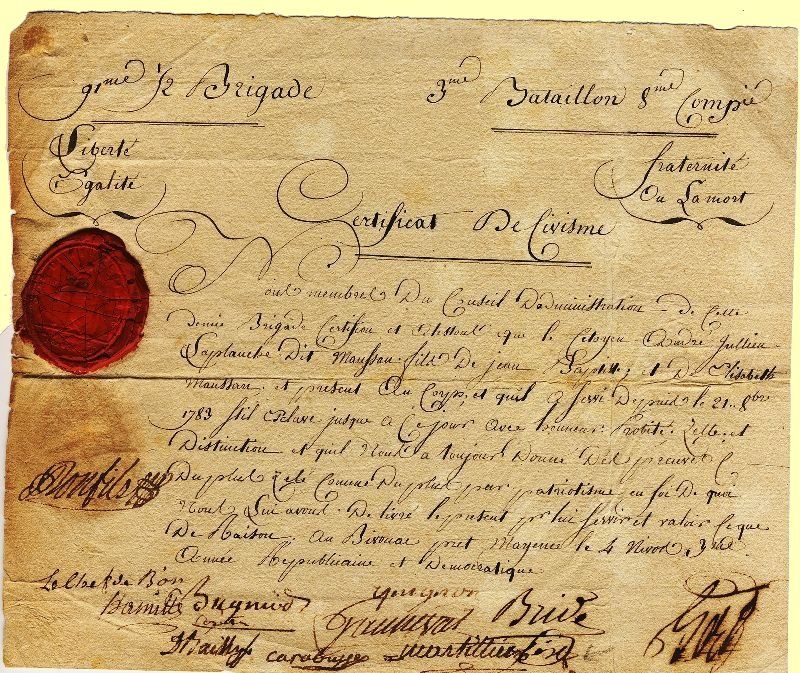 91me 1/2 Brigade 3me Bataillon 8me Compie
Liberté fraternité
Egalité Ou Lamort
Certificat De Civisme
Nous membres Du Conseil Dadministration de Cette
demie Brigade Certifion et attestons que le Citoyen André Jullien
Laplanche Dit Maussan fils De jean Baptiste et D Elisabeth
Maussan et present Au Corps et quil a servi Depuis le 21 8bre
1783 stil Esclave jusque a Ce jour avec honneur Probité Zelle et
Distinction et quil Nous a toujour Donné Des preuves
Du plus Zelé Comme Du plus pur patriotisme en foi De quoi
Nous Lui avons De livré le présent pr lui servir et valoir Ceque
De Raison Au Bivouac pret Mayence le 4 Nivos 3me
Année Republicaine et Democratique
Bonfils
Le Chef de B'on
Bride
D Bailly Carabusse